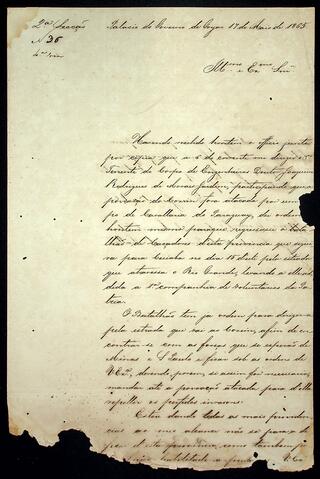 2ª Secção
Palacio do Governo de Goyaz 17 de Maio de 1865
N 36
Illmo e Exmo Snr
Havendo recebido hontem o officio junto
por copia que a 6 do corrente me dirigio o 1º
Tenente do Corpo de Engenheiros Bento Joaquim
Rodrigues de Moraes Jardim, participando que a
povoação do Coxim fora atacada por um
po de Cavallaria do Paraguay, de ordem
hontem mesmo para que regressasse o Bata
lhão de Caçadores desta provincia que segui
va para Cuiabá no dia 15 deste pela estrada
que atravessa o Rio Grande, levando
a 1ª companhia de voluntarios da Pa
tria.
O Batalhão tem já ordem para
pela estrada que vai ao Coxim, afim de en
contrar-se com as forças que se esperão de
Minas e S. Paulo e ficar sob as ordens de
V Exª, devendo porem, se assim fôr necessario,
mandar até a povoação atacada para d'ella
repellir os perfidos invasores.
Estou dando todas as mais providen
cias ao meu alcance não só para a
d'esta provincia, como tambem
habilitado a
V Ex